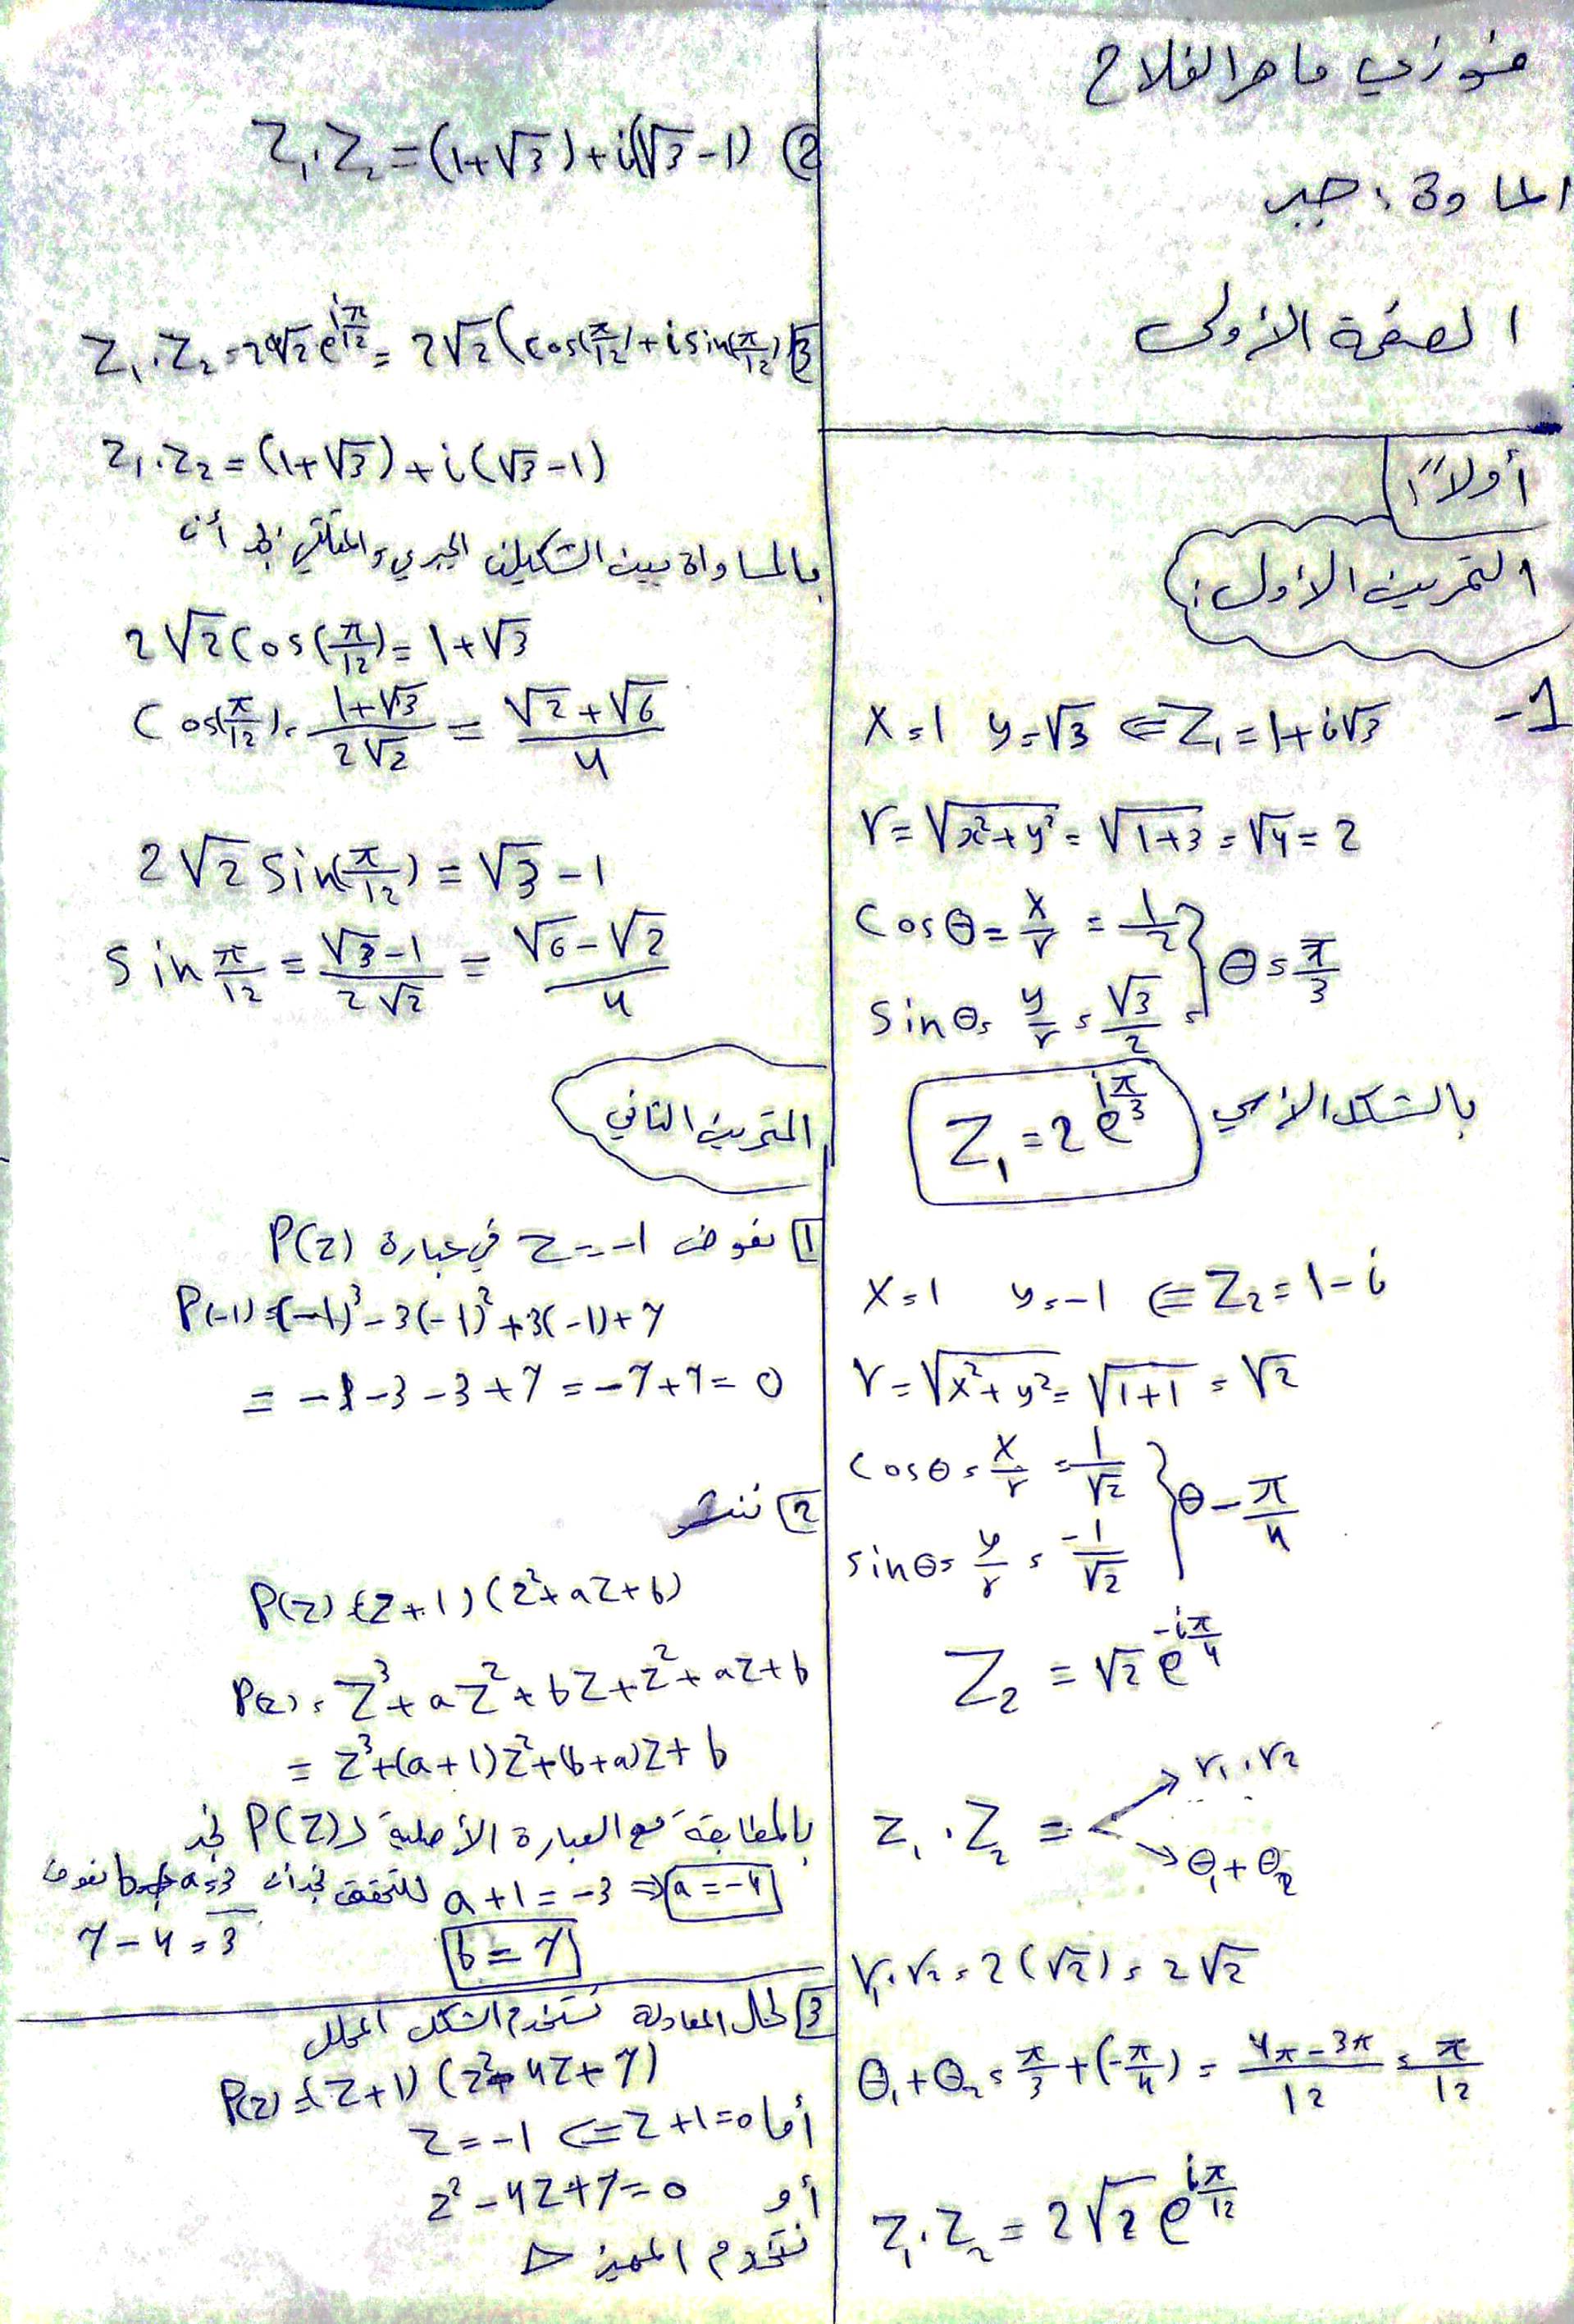 فوزي ماهر الفلاح
المادة: جبر
الصفحة الأولى
أولاً:
التمرين الأول:
1- Z₁ = 1+i√3 ⇐ x=1 y=√3
r = √(x²+y²) = √(1+3) = √4 = 2
cosθ = x/r = 1/2
sinθ = y/r = √3/2 } θ = π/3
بالشكل الأسي Z₁ = 2e^(iπ/3)
x=1 y=-1 ⇐ Z₂ = 1-i
r = √(x²+y²) = √(1+1) = √2
cosθ = x/r = 1/√2
sinθ = y/r = -1/√2 } θ - π/4
Z₂ = √2 e^(-iπ/4)
Z₁.Z₂ = r₁.r₂
θ₁+θ₂
r₁.r₂ = 2(√2) = 2√2
θ₁+θ₂ = π/3 + (-π/4) = (4π-3π)/12 = π/12
Z₁.Z₂ = 2√2 e^(iπ/12)
② Z₁.Z₂ = (1+√3)+i(√3-1)
3 Z₁.Z₂ = 2√2 e^(iπ/12) = 2√2(cos(π/12)+i sin(π/12))
Z₁.Z₂ = (1+√3)+i(√3-1)
بالمساواة بين الشكلين الجبري والمثلثي نجد أن
2√2 cos(π/12) = 1+√3
cos(π/12) = (1+√3)/(2√2) = (√2+√6)/4
2√2 sin(π/12) = √3-1
sin π/12 = (√3-1)/(2√2) = (√6-√2)/4
التمرين الثاني
1 نعوض z=-1 في عبارة P(z)
P(-1) = (-1)³-3(-1)²+3(-1)+7
= -1-3-3+7 = -7+7 = 0
2 ننشر
P(z) = (z+1)(z²+az+b)
P(z) = z³+az²+bz+z²+az+b
= z³+(a+1)z²+(b+a)z+b
بالمطابقة مع العبارة الأصلية لـ P(z) نجد
a+1=-3 ⇒ a=-4 للتحقق نجد أن b+a=3 نعوض
b=7 7-4=3
3 لحل المعادلة نستخدم الشكل المحلل
P(z) = (z+1)(z²-4z+7)
أما z+1=0 ⇒ z=-1
أو z²-4z+7=0
نستخدم المميز Δ